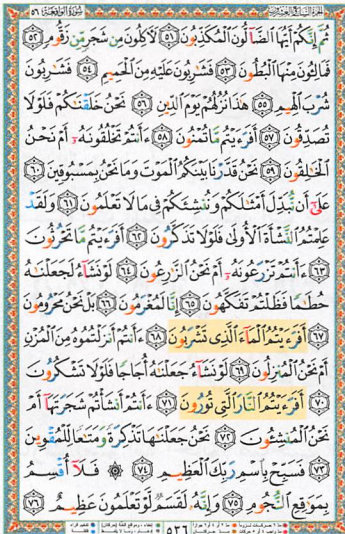 الجزء السابع والعشرون سورة الواقعة ٥٦
ثُمَّ إِنَّكُمْ أَيُّهَا الضَّآلُّونَ الْمُكَذِّبُونَ ٥١ لَآكِلُونَ مِن شَجَرٍ مِّن زَقُّومٍ ٥٢
فَمَالِـُٔونَ مِنْهَا الْبُطُونَ ٥٣ فَشَٰرِبُونَ عَلَيْهِ مِنَ الْحَمِيمِ ٥٤ فَشَٰرِبُونَ
شُرْبَ الْهِيمِ ٥٥ هَٰذَا نُزُلُهُمْ يَوْمَ الدِّينِ ٥٦ نَحْنُ خَلَقْنَٰكُمْ فَلَوْلَا
تُصَدِّقُونَ ٥٧ أَفَرَءَيْتُم مَّا تُمْنُونَ ٥٨ ءَأَنتُمْ تَخْلُقُونَهُۥٓ أَمْ نَحْنُ
الْخَٰلِقُونَ ٥٩ نَحْنُ قَدَّرْنَا بَيْنَكُمُ الْمَوْتَ وَمَا نَحْنُ بِمَسْبُوقِينَ ٦٠
عَلَىٰٓ أَن نُّبَدِّلَ أَمْثَٰلَكُمْ وَنُنشِئَكُمْ فِى مَا لَا تَعْلَمُونَ ٦١ وَلَقَدْ
عَلِمْتُمُ النَّشْأَةَ الْأُولَىٰ فَلَوْلَا تَذَكَّرُونَ ٦٢ أَفَرَءَيْتُم مَّا تَحْرُثُونَ
٦٣ ءَأَنتُمْ تَزْرَعُونَهُۥٓ أَمْ نَحْنُ الزَّٰرِعُونَ ٦٤ لَوْ نَشَآءُ لَجَعَلْنَٰهُ
حُطَٰمًا فَظَلْتُمْ تَفَكَّهُونَ ٦٥ إِنَّا لَمُغْرَمُونَ ٦٦ بَلْ نَحْنُ مَحْرُومُونَ
٦٧ أَفَرَءَيْتُمُ الْمَآءَ الَّذِى تَشْرَبُونَ ٦٨ ءَأَنتُمْ أَنزَلْتُمُوهُ مِنَ الْمُزْنِ
أَمْ نَحْنُ الْمُنزِلُونَ ٦٩ لَوْ نَشَآءُ جَعَلْنَٰهُ أُجَاجًا فَلَوْلَا تَشْكُرُونَ
٧٠ أَفَرَءَيْتُمُ النَّارَ الَّتِى تُورُونَ ٧١ ءَأَنتُمْ أَنشَأْتُمْ شَجَرَتَهَآ أَمْ
نَحْنُ الْمُنشِـُٔونَ ٧٢ نَحْنُ جَعَلْنَٰهَا تَذْكِرَةً وَمَتَٰعًا لِّلْمُقْوِينَ
٧٣ فَسَبِّحْ بِاسْمِ رَبِّكَ الْعَظِيمِ ٧٤ ۞ فَلَآ أُقْسِمُ
بِمَوَٰقِعِ النُّجُومِ ٧٥ وَإِنَّهُۥ لَقَسَمٌ لَّوْ تَعْلَمُونَ عَظِيمٌ ٧٦
٥٣٦